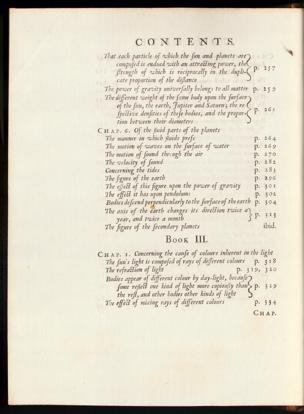 CONTENTS.
That each particle of which the sun and planets are
composed is endued with an attracting power, the
strength of which is reciprocally in the dupli-
cate proportion of the distance p. 257
The power of gravity universally belongs to all matter p. 259
The different weight of the same body upon the surface
of the sun, the earth, Jupiter and Saturn; the re-
spective densities of these bodies, and the propor-
tion between their diameters p. 261
CHAP. 6. Of the fluid parts of the planets
The manner in which fluids press p. 264
The motion of waves on the surface of water p. 269
The motion of sound through the air p. 270
The velocity of sound p. 282
Concerning the tides p. 283
The figure of the earth p. 296
The effect of this figure upon the power of gravity p. 301
The effect it has upon pendulums p. 302
Bodies descend perpendicularly to the surface of the earth p. 304
The axis of the earth changes its direction twice a
year, and twice a month p. 313
The figure of the secundary planets ibid.
BOOK III.
CHAP. 1. Concerning the cause of colours inherent in the light
The sun's light is composed of rays of different colours p. 318
The refraction of light p. 319, 320
Bodies appear of different colour by day-light, because
some reflect one kind of light more copiously than
the rest, and other bodies other kinds of light p. 329
The effect of mixing rays of different colours p. 334
CHAP.